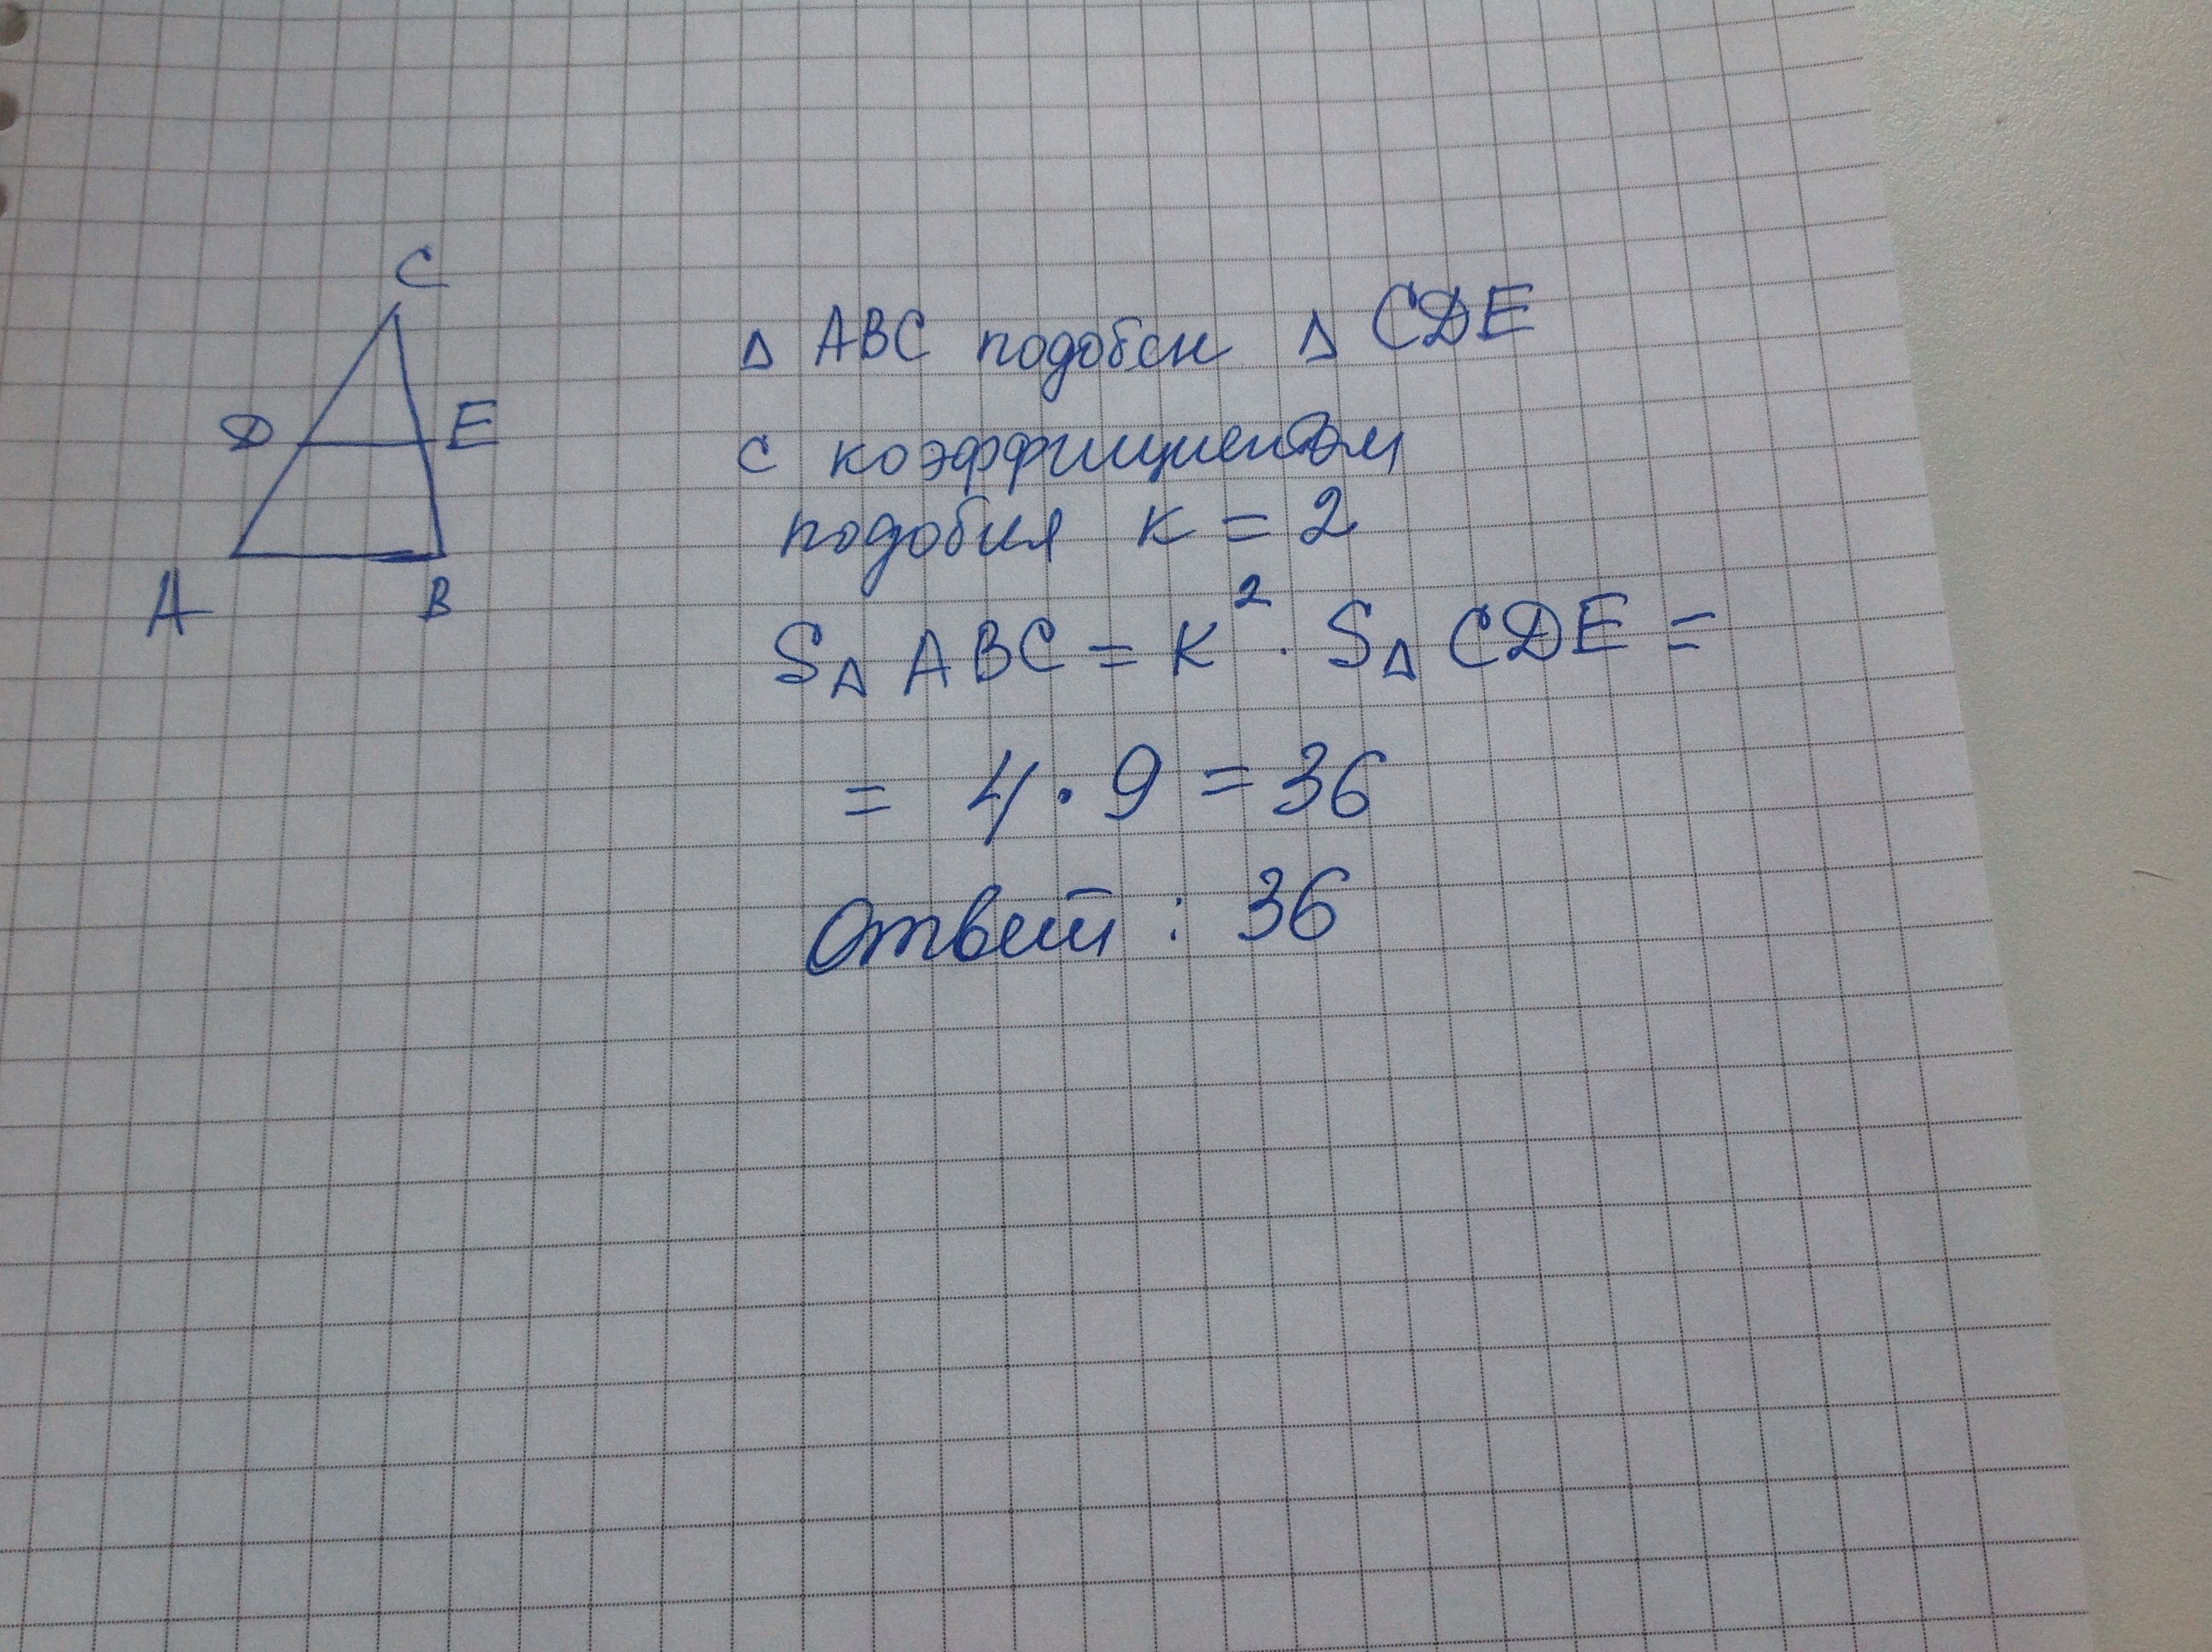 C
D E
A B
Δ ABC подобен Δ CDE
с коэффициентом
подобия к = 2
SΔ ABC = K² · SΔ CDE =
= 4 · 9 = 36
Ответ : 36